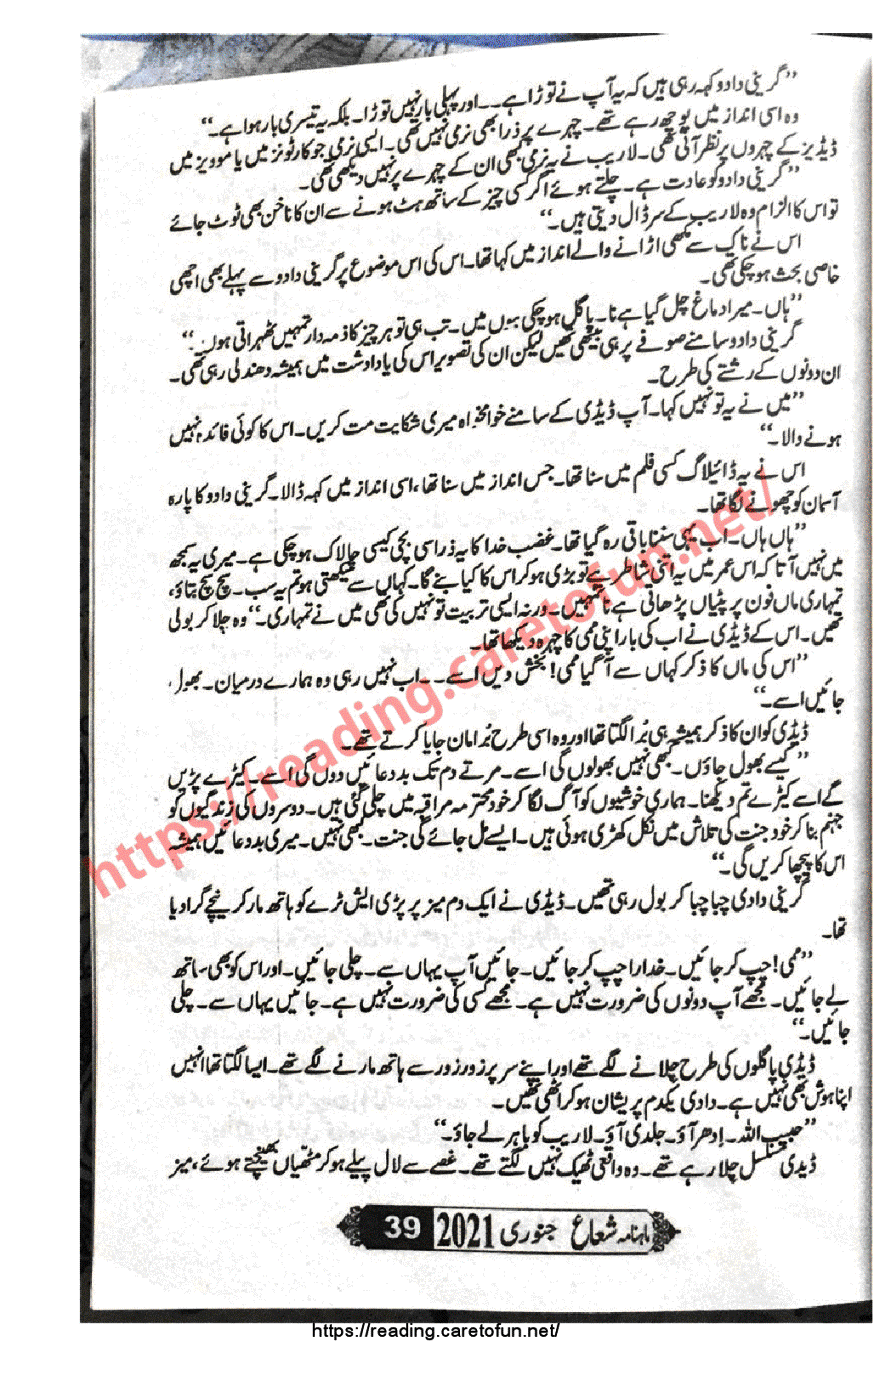 ”گرینی دادو کہہ رہی ہیں کہ یہ آپ نے توڑا ہے۔۔ اور پہلی بار نہیں توڑا۔ بلکہ یہ تیسری بار ہوا ہے۔“
وہ اسی انداز میں پوچھ رہے تھے۔ چہرے پر ذرا بھی نرمی نہیں تھی۔ ایسی نرمی جو کارٹونز میں یا موویز میں
ڈیڈیز کے چہروں پر نظر آتی تھی۔ لاریب نے یہ نرمی کبھی ان کے چہرے پر نہیں دیکھی تھی۔
”گرینی دادو کو عادت ہے۔ چلتے ہوئے اگر کسی چیز کے ساتھ ہٹ ہونے سے ان کا ناخن بھی ٹوٹ جائے
تو اس کا الزام وہ لاریب کے سر ڈال دیتی ہیں۔“
اس نے ناک سے مکھی اڑانے والے انداز میں کہا تھا۔ اس کی اس موضوع پر گرینی دادو سے پہلے بھی اچھی
خاصی بحث ہو چکی تھی۔
”ہاں۔ میرا دماغ چل گیا ہے نا۔ پاگل ہو چکی ہوں میں۔ تب ہی تو ہر چیز کا ذمہ دار تمہیں ٹھہراتی ہوں۔“
گرینی دادو سامنے صوفے پر ہی بیٹھی تھیں لیکن ان کی تصویر اس کی یادداشت میں ہمیشہ دھندلی رہی تھی۔
ان دونوں کے رشتے کی طرح۔
”میں نے یہ تو نہیں کہا۔ آپ ڈیڈی کے سامنے خوامخواہ میری شکایت مت کریں۔ اس کا کوئی فائدہ نہیں
ہونے والا۔“
اس نے یہ ڈائیلاگ کسی فلم میں سنا تھا۔ جس انداز میں سنا تھا، اسی انداز میں کہہ ڈالا۔ گرینی دادو کا پارہ
آسمان کو چھونے لگا تھا۔
”ہاں ہاں۔ اب یہی سننا باقی رہ گیا تھا۔ غضب خدا کا یہ ذرا سی بچی کیسی چالاک ہو چکی ہے۔ میری یہ سمجھ
میں نہیں آتا کہ اس عمر میں یہ اتنی شاطر ہے تو بڑی ہو کر اس کا کیا بنے گا۔ کہاں سے سیکھتی ہو تم یہ سب۔ سچ سچ بتاؤ،
تمہاری ماں فون پر پٹیاں پڑھاتی ہے نا تمہیں۔ ورنہ ایسی تربیت تو نہیں کی تھی میں نے تمہاری۔“ وہ چلا کر بولی
تھیں۔ اس کے ڈیڈی نے اب کی بار اپنی ممی کا چہرہ دیکھا تھا۔
”اس کی ماں کا ذکر کہاں سے آ گیا ممی! بخش دیں اسے۔۔۔ اب نہیں رہی وہ ہمارے درمیان۔ بھول
جائیں اسے۔“
ڈیڈی کو ان کا ذکر ہمیشہ ہی برا لگتا تھا اور وہ اسی طرح برا مان جایا کرتے تھے۔
”کیسے بھول جاؤں۔ کبھی نہیں بھولوں گی اسے۔ مرتے دم تک بددعائیں دوں گی اسے۔ کیڑے پڑیں
گے اسے کیڑے تم دیکھنا۔ ہماری خوشیوں کو آگ لگا کر خود محترمہ مراقبہ میں چلی گئی ہیں۔ دوسروں کی زندگیوں کو
جہنم بنا کر خود جنت کی تلاش میں نکل کھڑی ہوئی ہیں۔ ایسے مل جائے گی جنت۔ کبھی نہیں۔ میری بددعائیں ہمیشہ
اس کا پیچھا کریں گی۔“
گرینی دادی چبا چبا کر بول رہی تھیں۔ ڈیڈی نے ایک دم میز پر پڑی ایش ٹرے کو ہاتھ مار کر نیچے گرا دیا
تھا۔
”ممی! چپ کر جائیں۔ خدارا چپ کر جائیں۔ جائیں آپ یہاں سے۔ چلی جائیں۔ اور اس کو بھی ساتھ
لے جائیں۔ مجھے آپ دونوں کی ضرورت نہیں ہے۔ مجھے کسی کی ضرورت نہیں ہے۔ جائیں یہاں سے۔ چلی
جائیں۔“
ڈیڈی پاگلوں کی طرح چلانے لگے تھے اور اپنے سر پر زور زور سے ہاتھ مارنے لگے تھے۔ ایسا لگتا تھا انہیں
اپنا ہوش بھی نہیں ہے۔ دادی یکدم پریشان ہو کر اٹھی تھیں۔
”حبیب اللہ۔ ادھر آؤ۔ جلدی آؤ۔ لاریب کو باہر لے جاؤ۔“
ڈیڈی مسلسل چلا رہے تھے۔ وہ واقعی ٹھیک نہیں لگتے تھے۔ غصے سے لال پیلے ہو کر مٹھیاں بھینچتے ہوئے، میز
ماہنامہ شعاع جنوری 2021 39
https://reading.caretofun.net/
https://reading.caretofun.net/